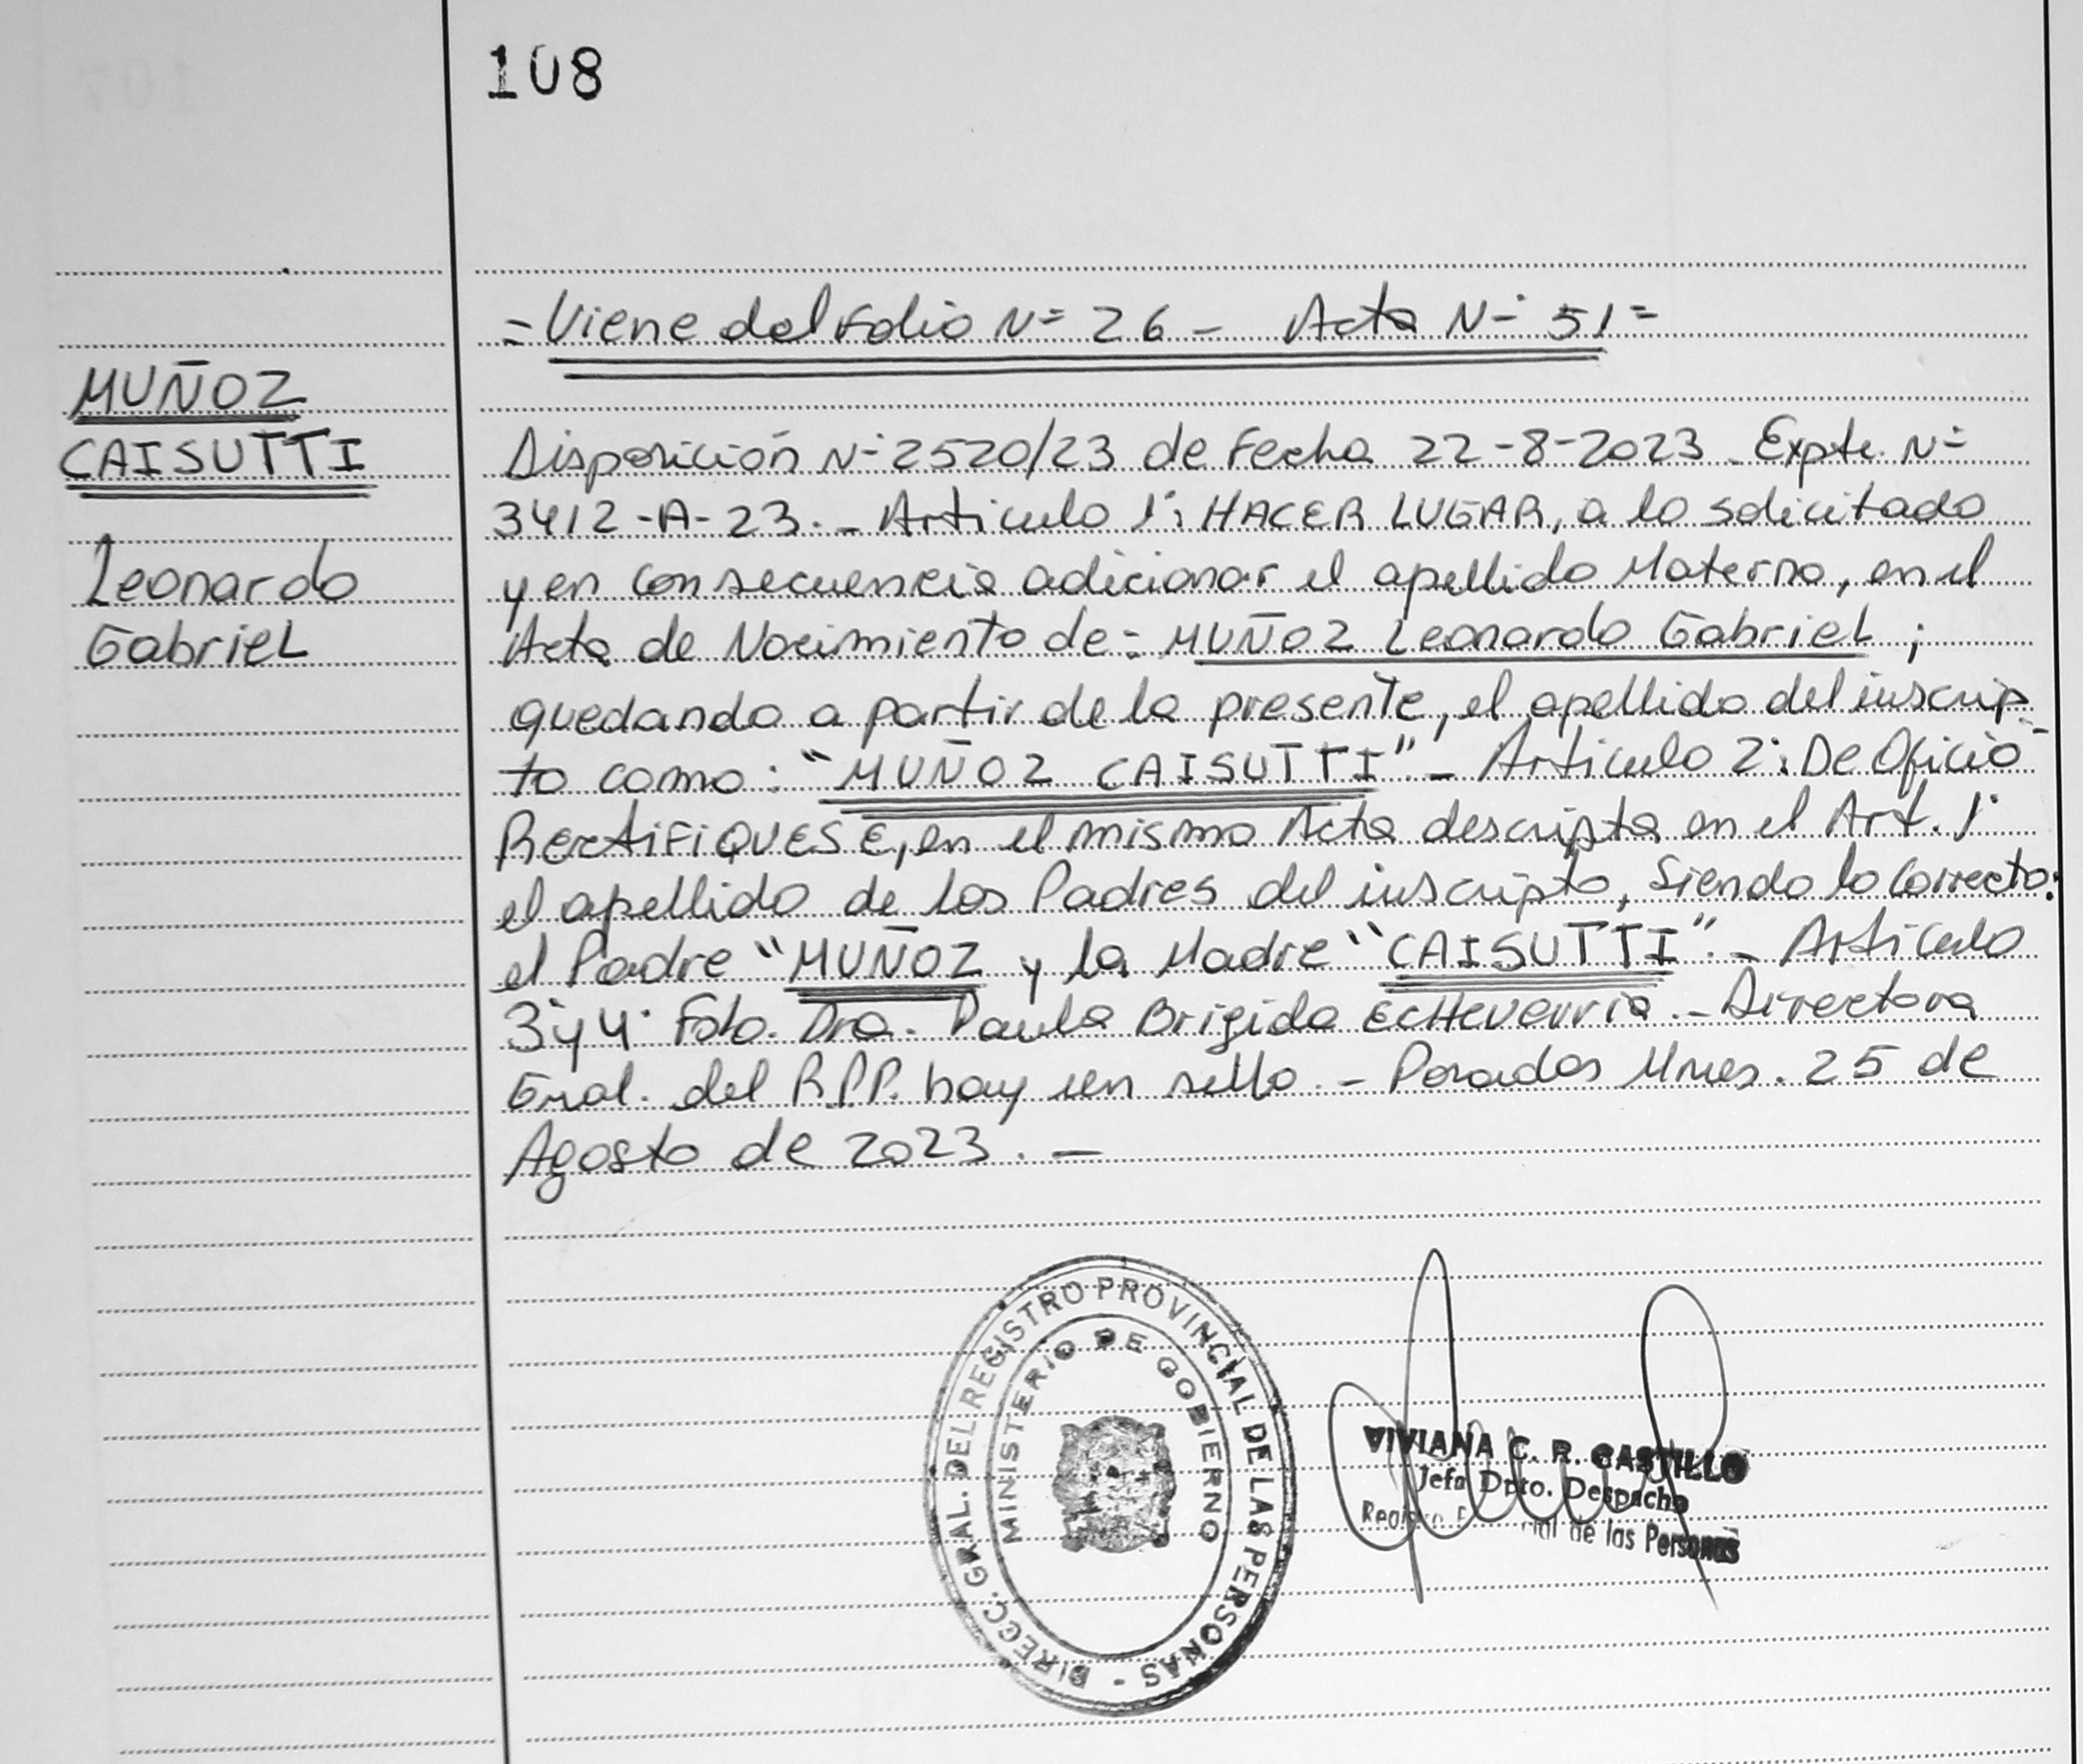 108
= Viene del Folio Nº 26 - Acta Nº 51 =
MUÑOZ
CAISUTTI
Leonardo
Gabriel
Disposición Nº 2520/23 de Fecha 22-8-2023. Expte. Nº
3412-A-23. - Articulo 1º: HACER LUGAR, a lo solicitado
y en consecuencia adicionar el apellido Materno, en el
Acta de Nacimiento de: MUÑOZ Leonardo Gabriel ;
quedando a partir de la presente, el apellido del inscrip-
to como : "MUÑOZ CAISUTTI" - Articulo 2º: De Oficio
RectiFiQUESE, en el mismo Acta descripta en el Art. 1º
el apellido de los Padres del inscripto, Siendo lo Correcto:
el Padre "MUÑOZ y la Madre "CAISUTTI". - Articulo
3º y 4º Fdo. Dra. Paula Brigida Echeverria. - Directora
Gral. del R.P.P. hay un sello. - Posadas Mnes. 25 de
Agosto de 2023. -
DIRECC. GRAL. DEL REGISTRO PROVINCIAL DE LAS PERSONAS -
MINISTERIO DE GOBIERNO
VIVIANA C. R. CASTILLO
Jefa Dpto. Despacho
de las Personas